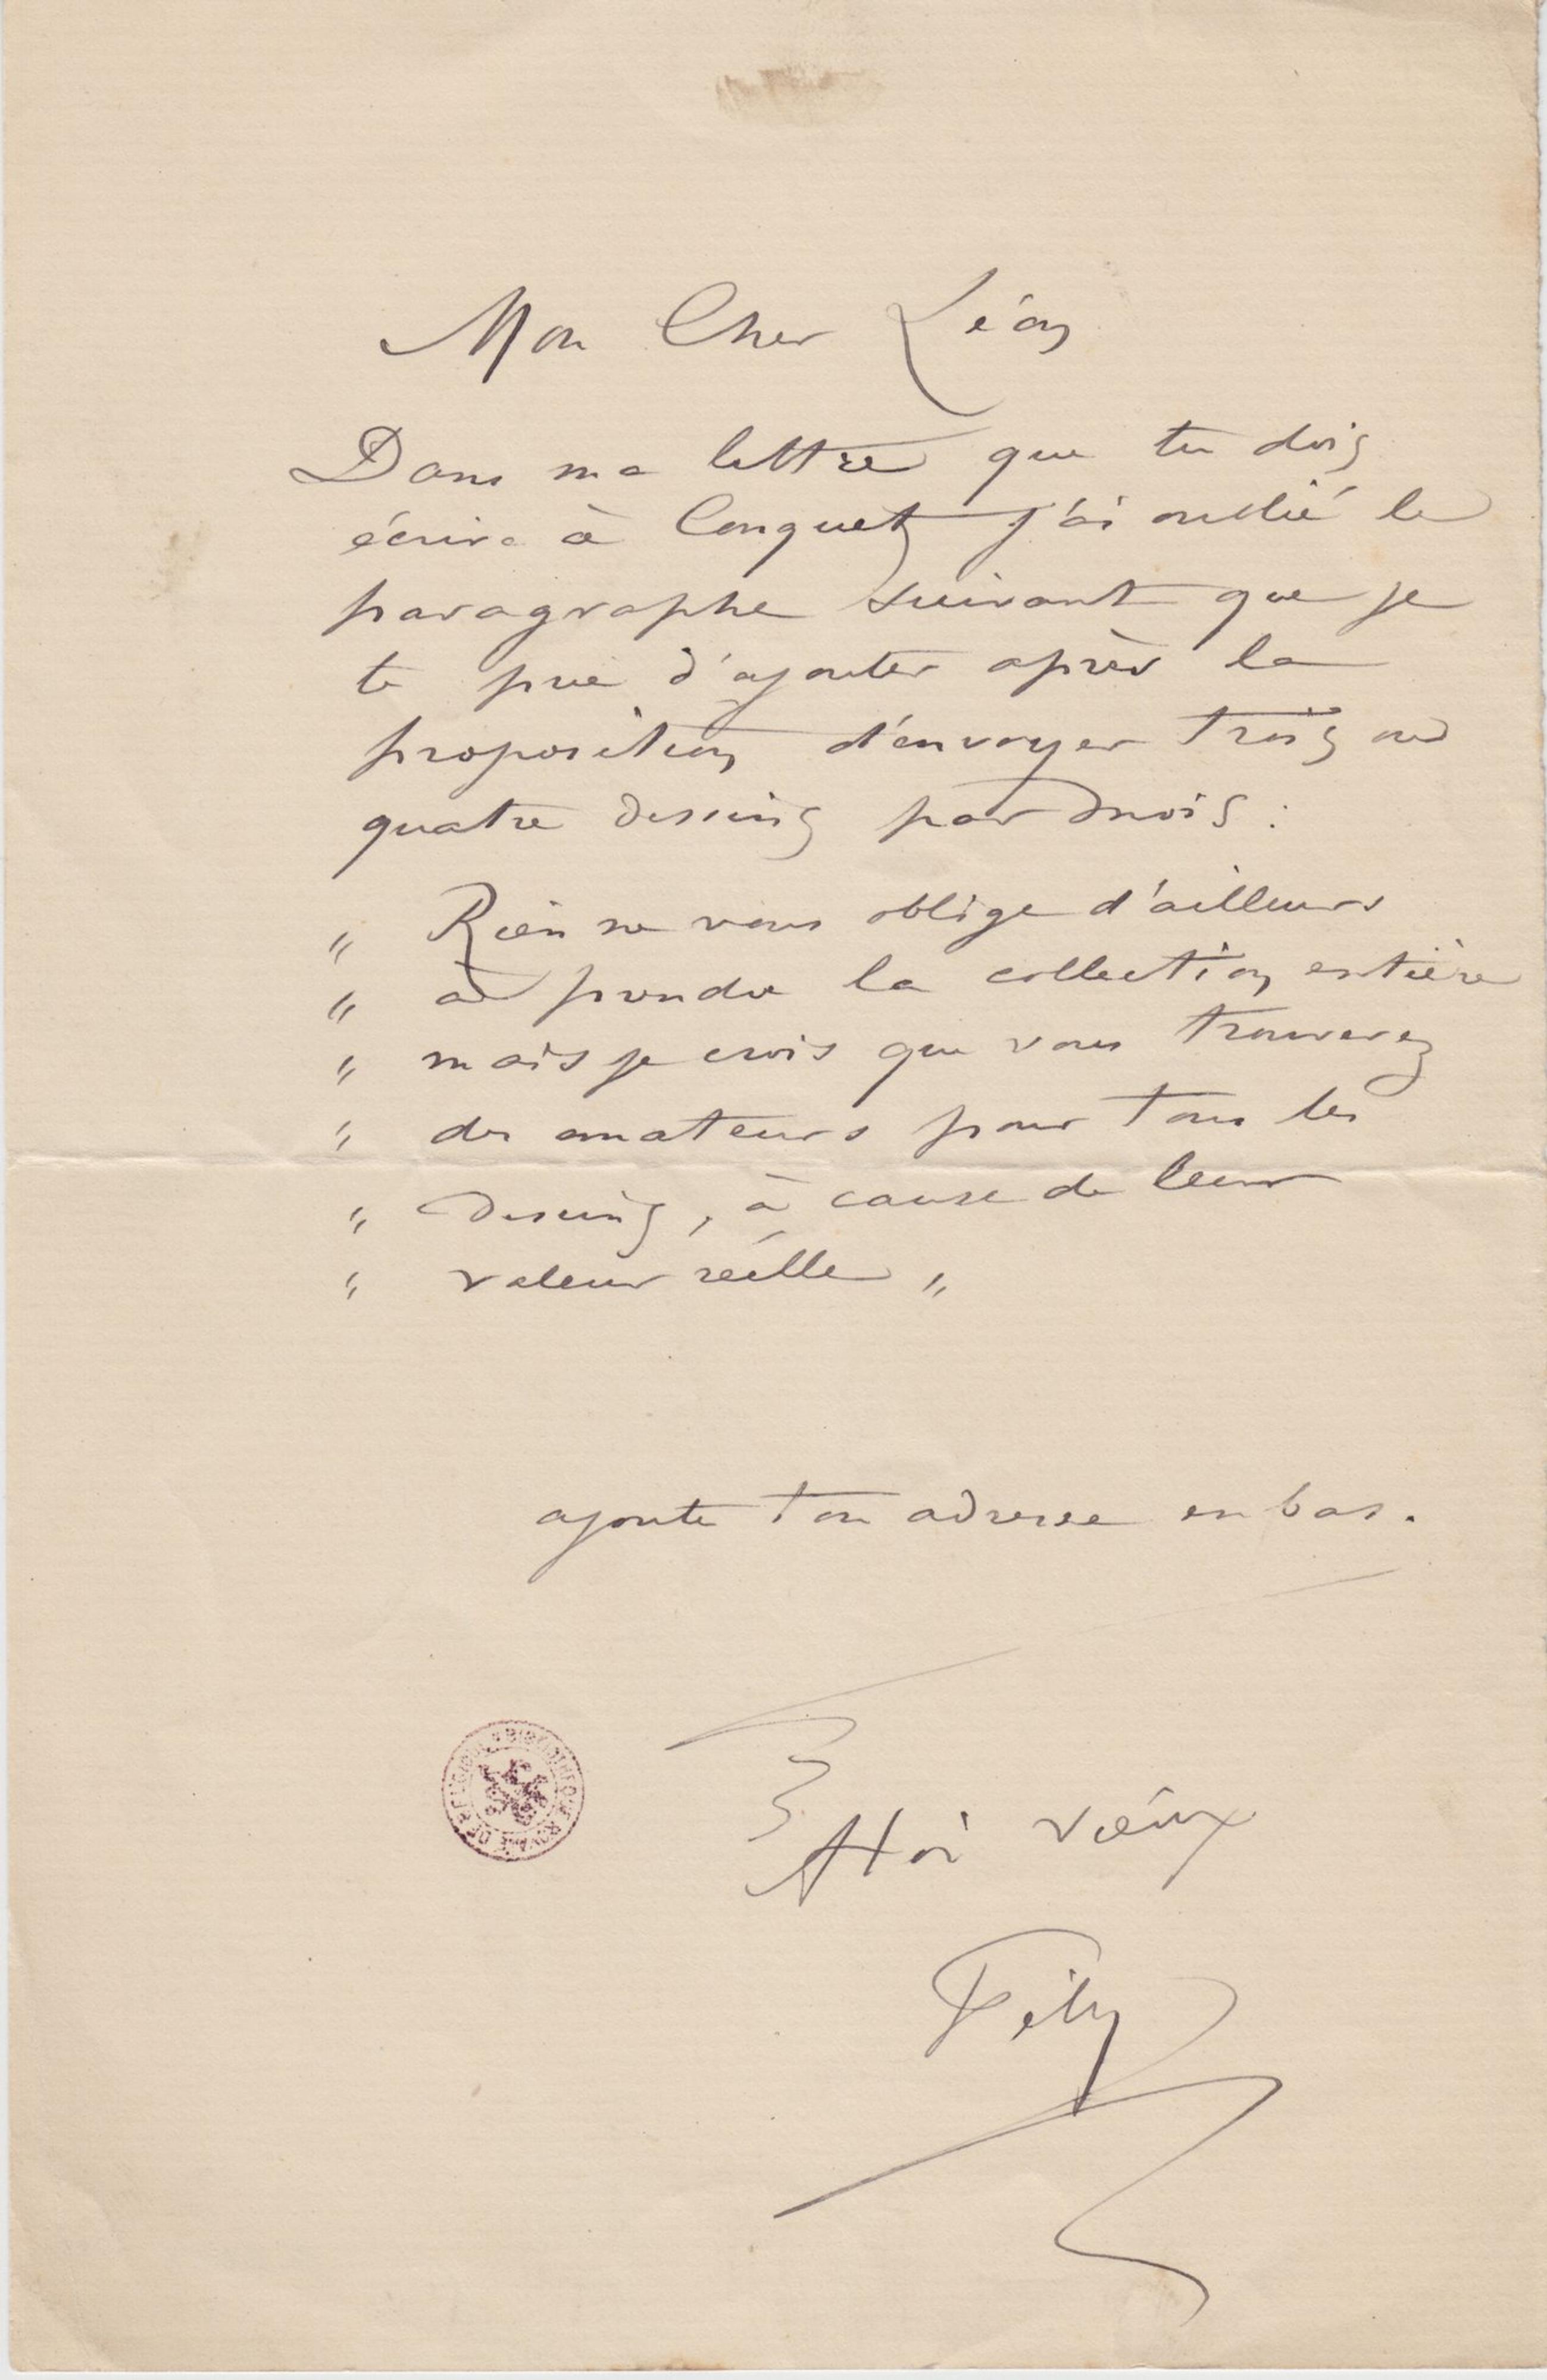 Mon Cher Léon
Dans ma lettre que tu dois
écrire à Conquet j'ai oublié le
paragraphe suivant que je
te prie d'ajouter après la
proposition d'envoyer trois ou
quatre dessins par mois :
" Rien ne vous oblige d'ailleurs
" à prendre la collection entière
" mais je crois que vous trouverez
" des amateurs pour tous les
" dessins, à cause de leur
" valeur réelle "
ajoute ton adresse en bas.
à toi vieux
Fély
BIBLIOTHEQUE ROYALE DE BELGIQUE